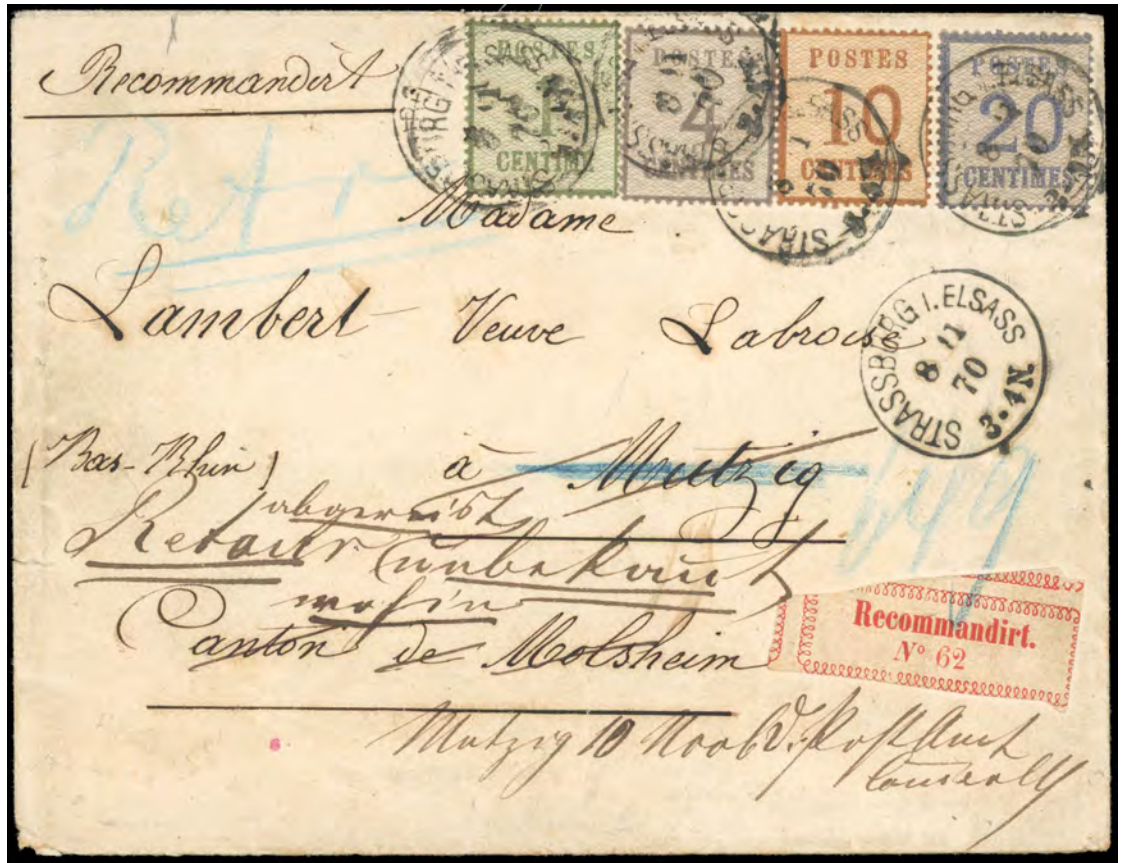 Recommandirt
POSTES 1 CENTIME
POSTES 4 CENTIMES
POSTES 10 CENTIMES
POSTES 20 CENTIMES
Retour
Madame
Lambert Veuve Labroise
STRASSBURG I. ELSASS
8 11
70
3-4N.
(Bas-Rhin) à Mutzig
abgereist
Retour unbekannt
wohin
Canton de Molsheim
Recommandirt.
N° 62
Mutzig 10 Novb D. Post Amt